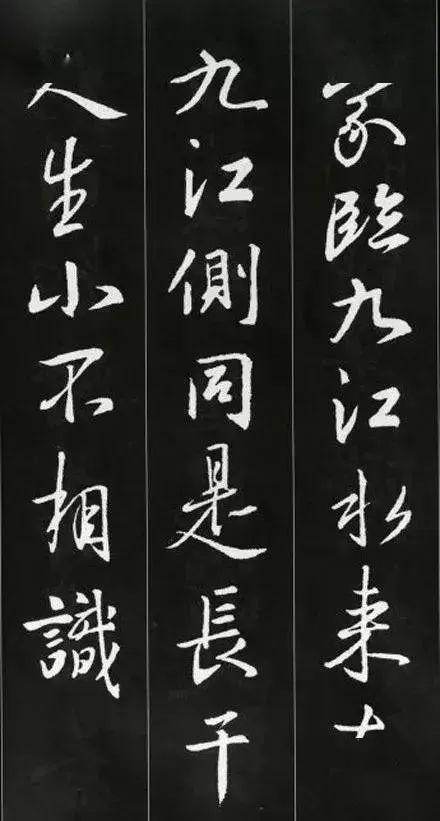 家臨九江水来
九江側同是長干
人生小不相識